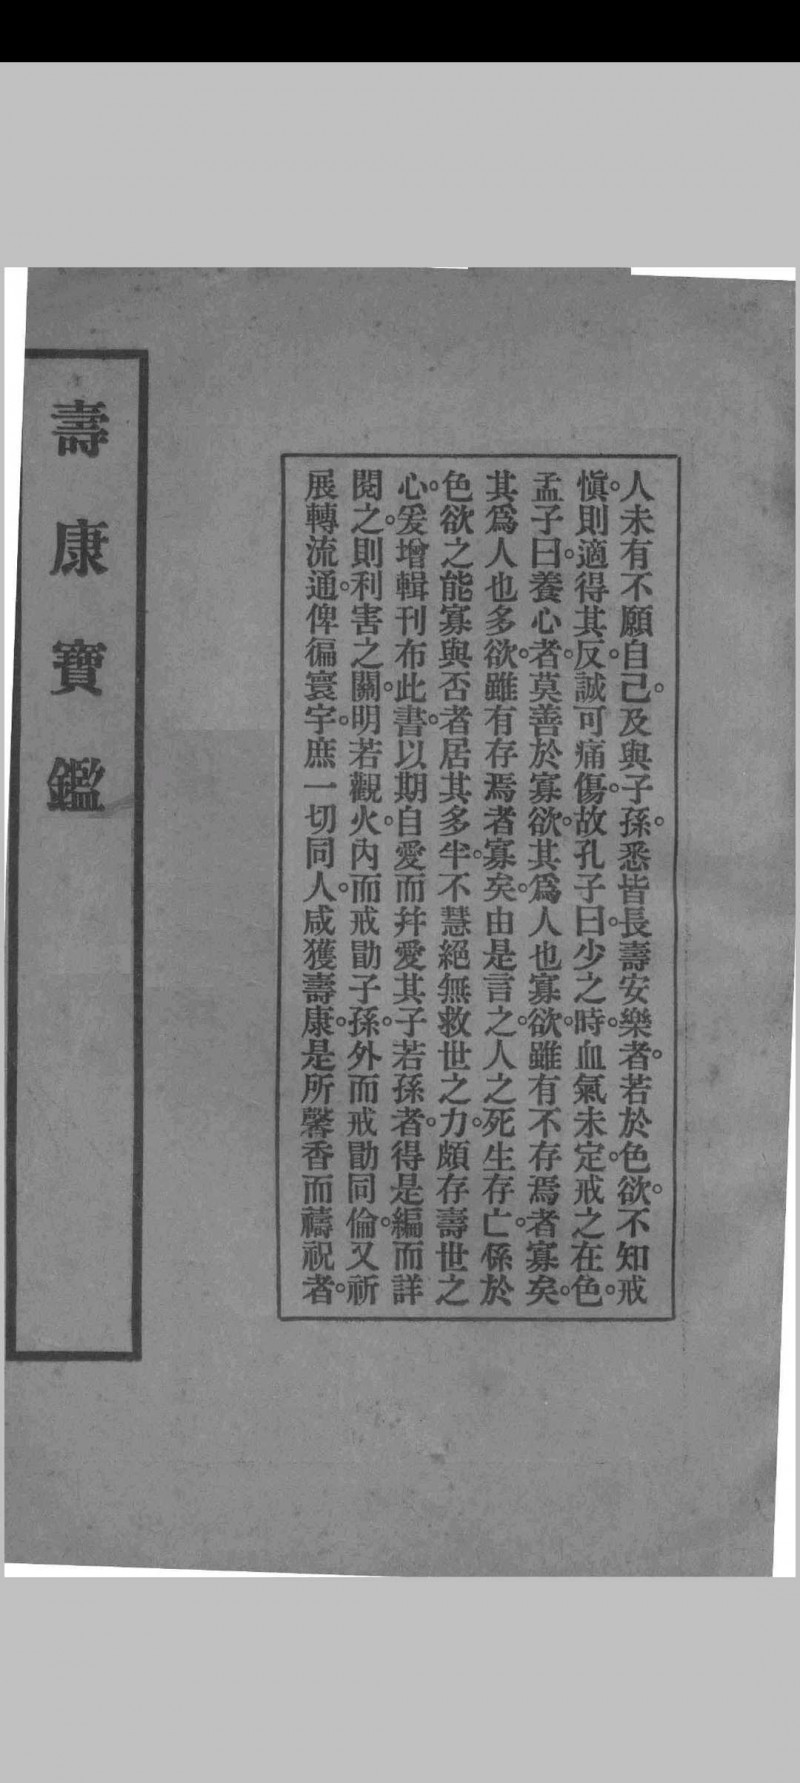 人未有不願自己。及與子孫。悉皆長壽安樂者。若於色欲。不知戒
慎。則適得其反。誠可痛傷。故孔子曰。少之時。血氣未定。戒之在色。
孟子曰。養心者。莫善於寡欲。其爲人也寡欲。雖有不存焉者寡矣。
其爲人也多欲。雖有存焉者寡矣。由是言之。人之死生存亡。係於
色欲之能寡與否者。居其多半。不慧絕無救世之力。頗存壽世之
心。爰增輯刊布此書。以期自愛而幷愛其子若孫者。得是編而詳
閱之。則利害之關。明若觀火。內而戒勖子孫。外而戒勖同倫。又祈
展轉流通。俾徧寰宇。庶一切同人。咸獲壽康。是所馨香而禱祝者。
壽康寶鑑